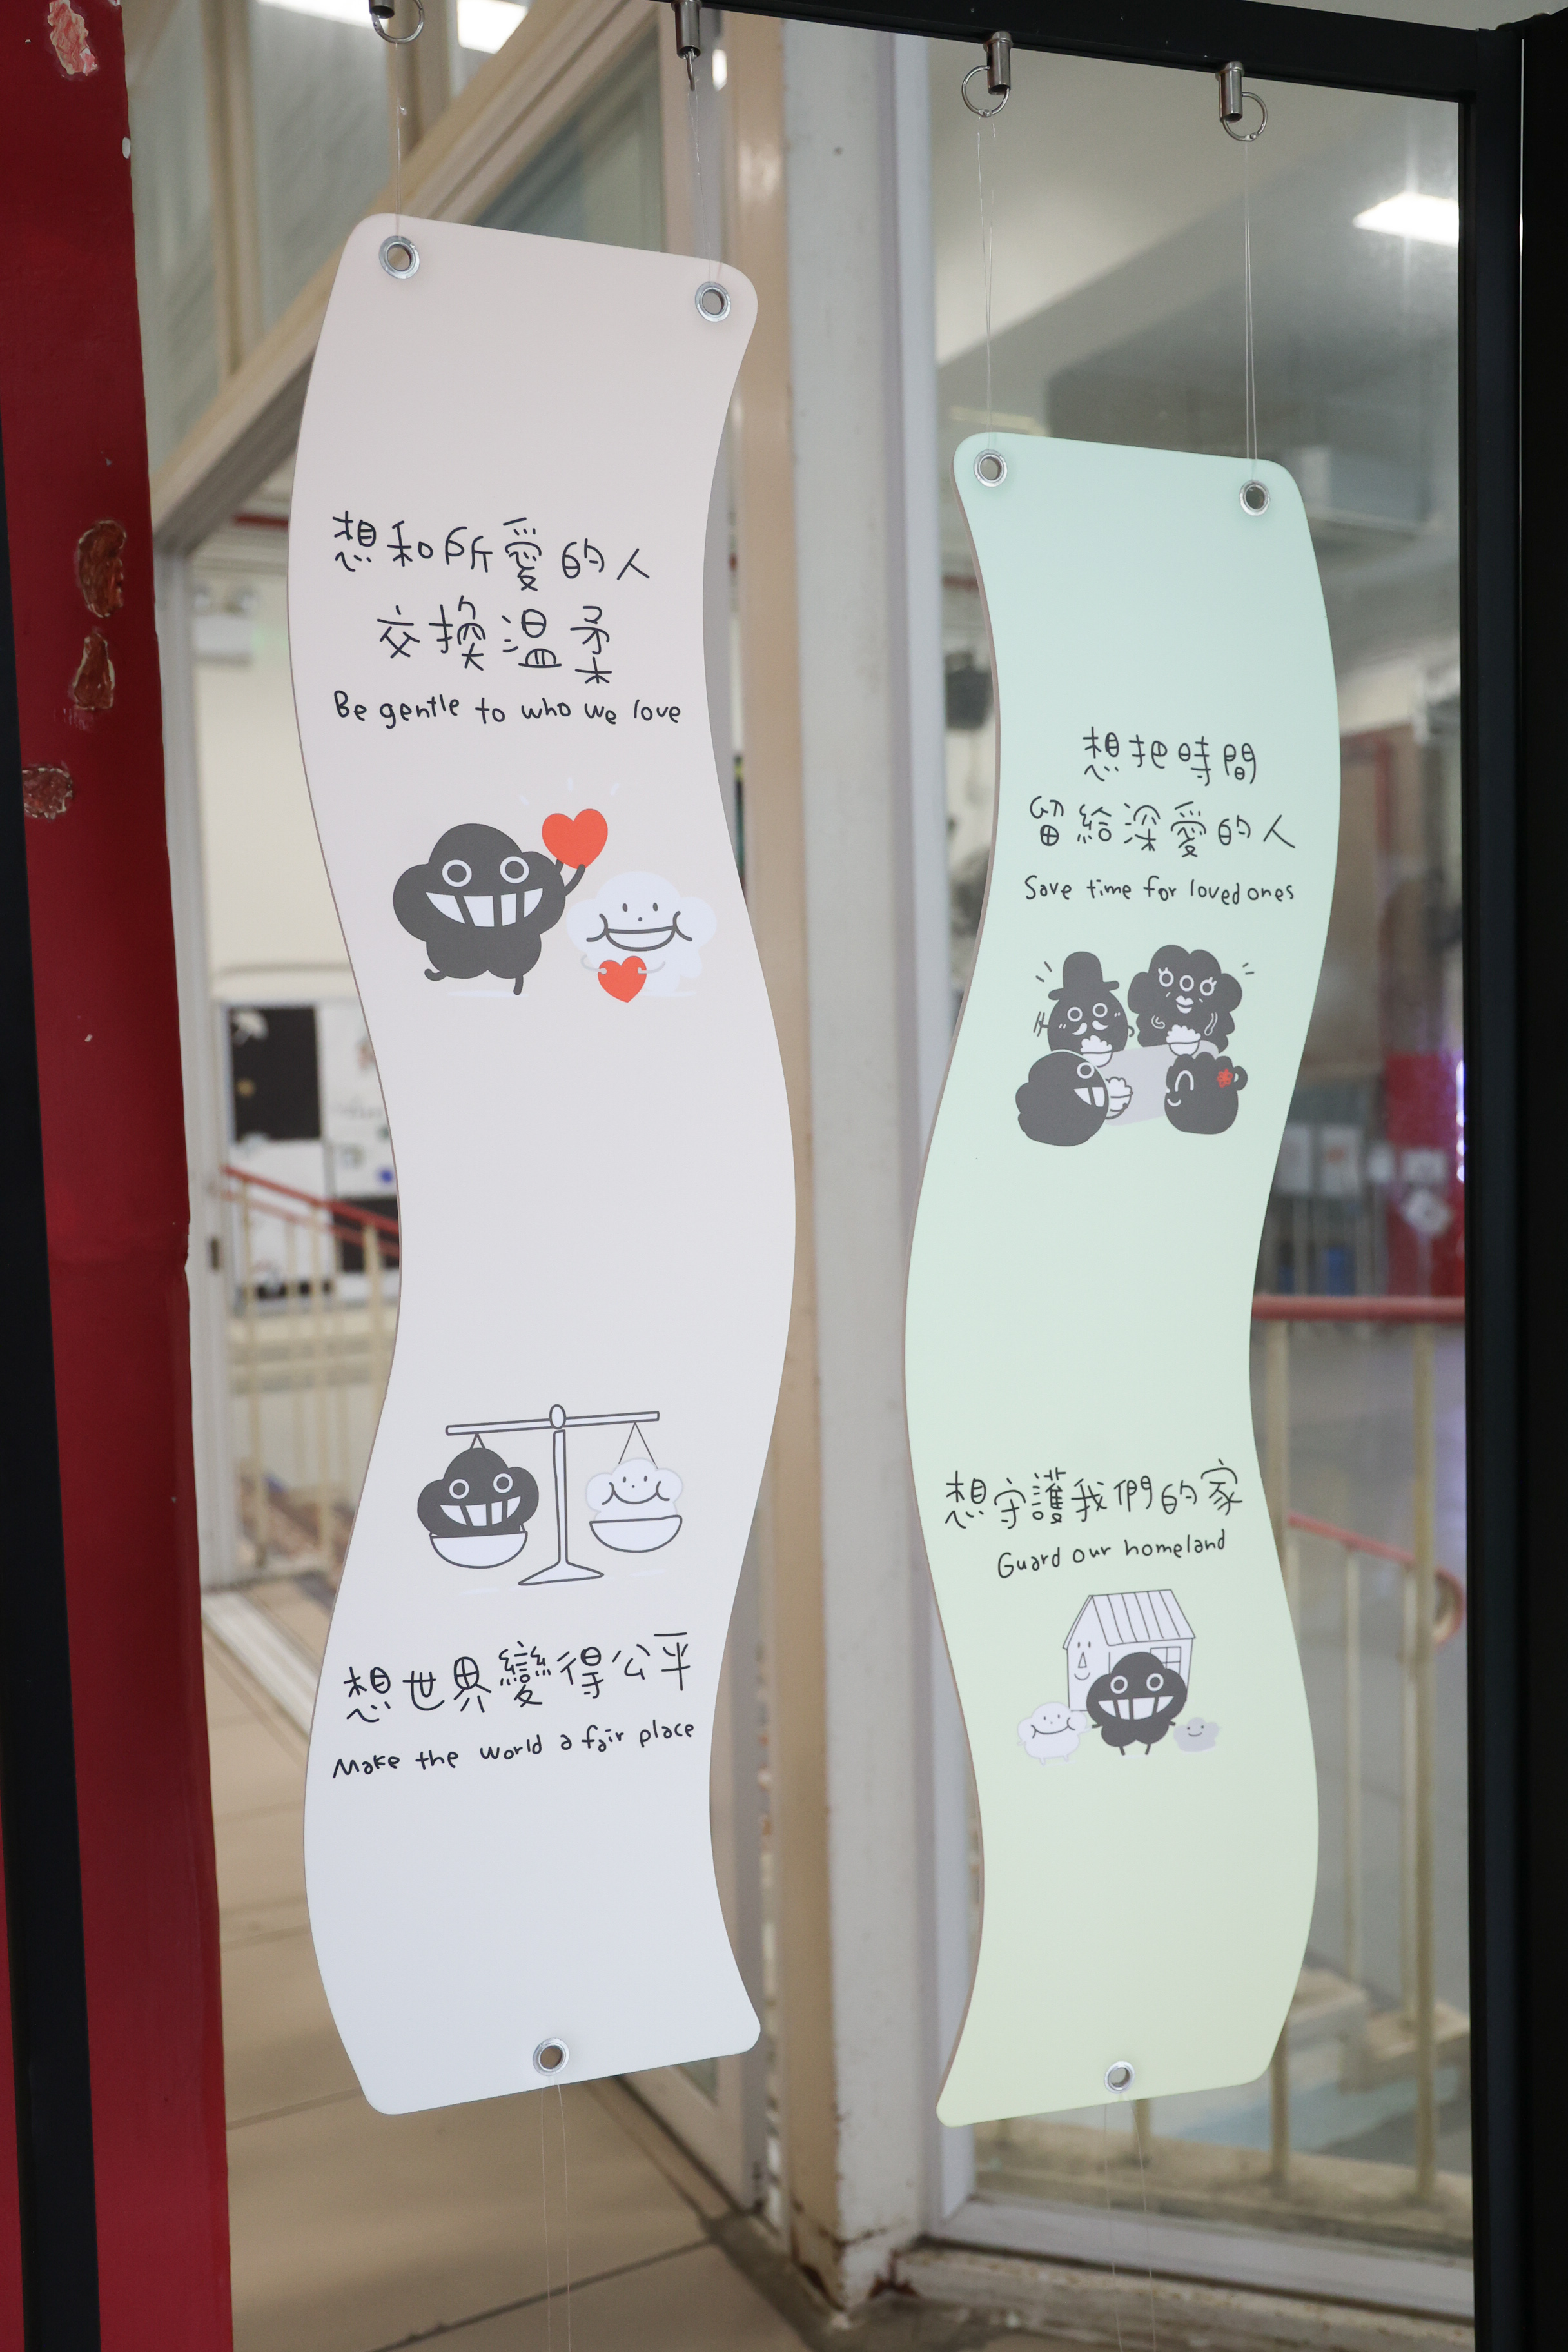 想和所愛的人
交換溫柔
Be gentle to who we love
想世界變得公平
Make the world a fair place
想把時間
留給深愛的人
Save time for loved ones
想守護我們的家
Guard our homeland